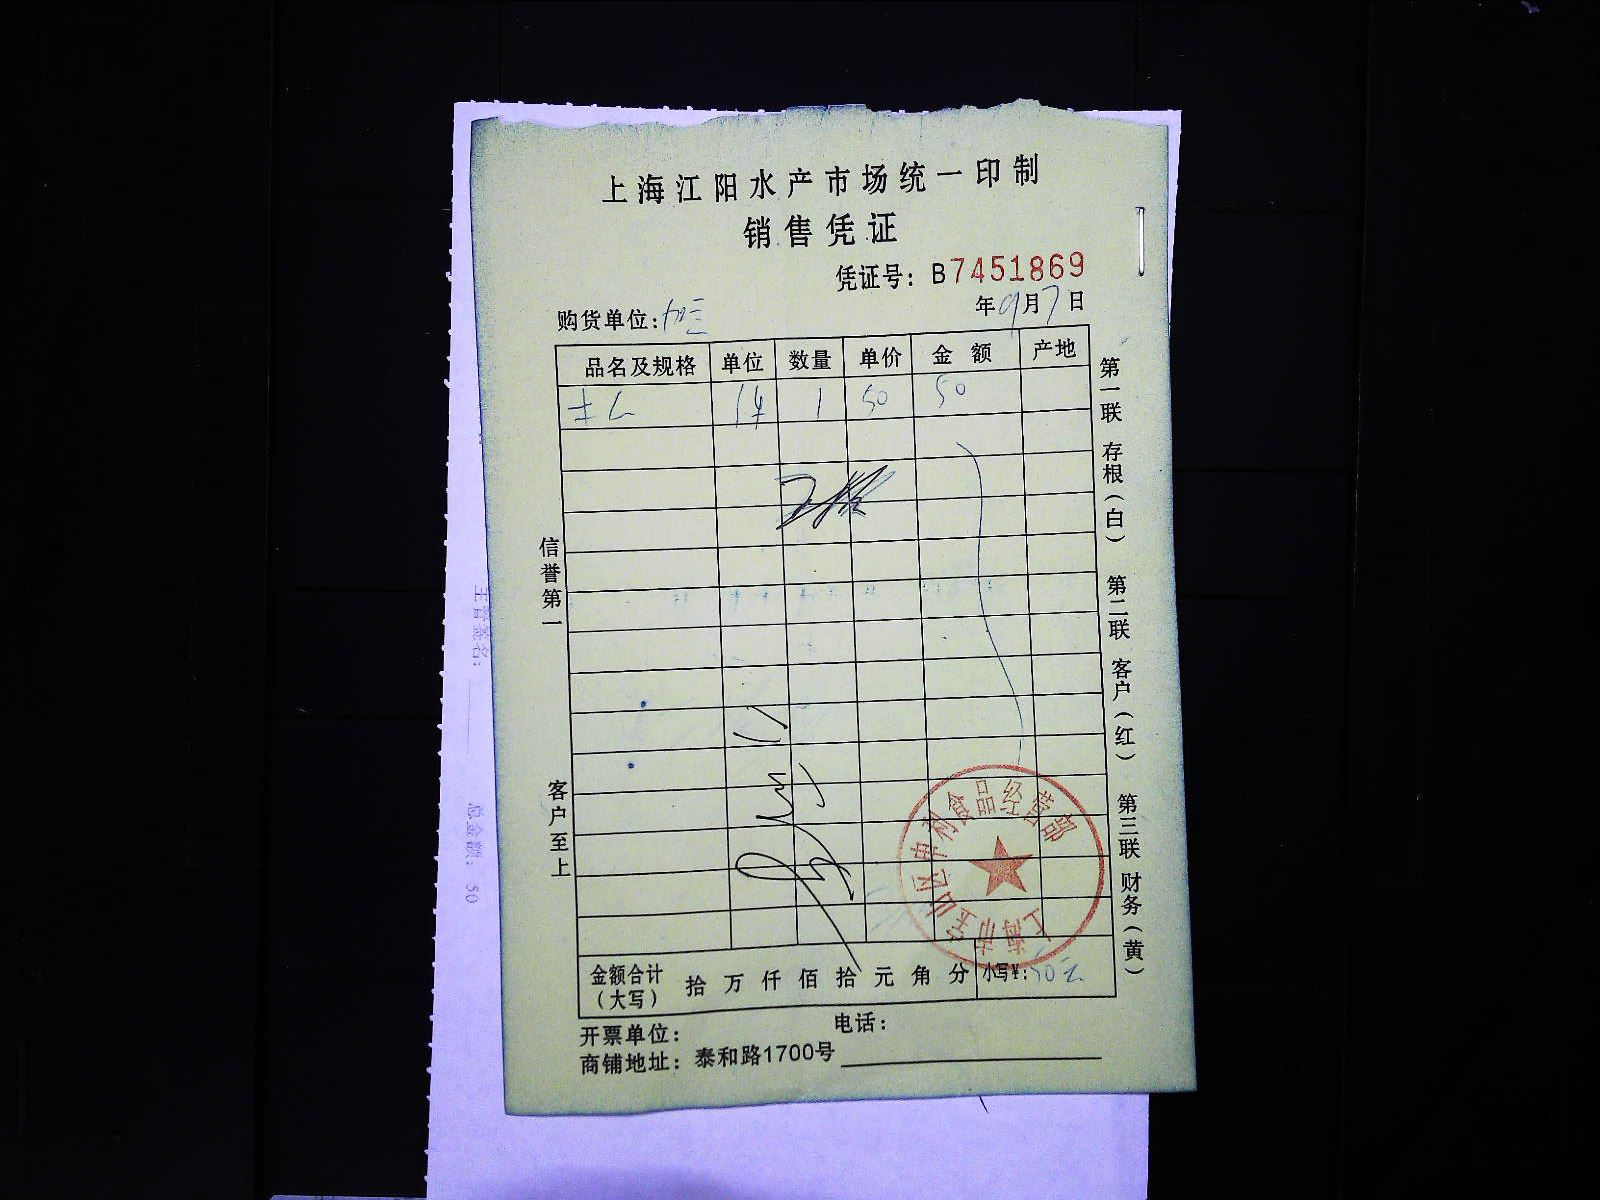 上海江阳水产市场统一印制
销售凭证
凭证号：B7451869
年9月7日
购货单位：
品名及规格 单位 数量 单价 金额 产地
1 50 50
信誉第一
客户至上
第一联 存根（白） 第二联 客户（红） 第三联 财务（黄）
上海市宝山区申利食品经营部
金额合计（大写） 拾 万 仟 佰 拾 元 角 分 小写¥：50元
开票单位： 电话：
商铺地址：泰和路1700号
主管签名：
总金额：50